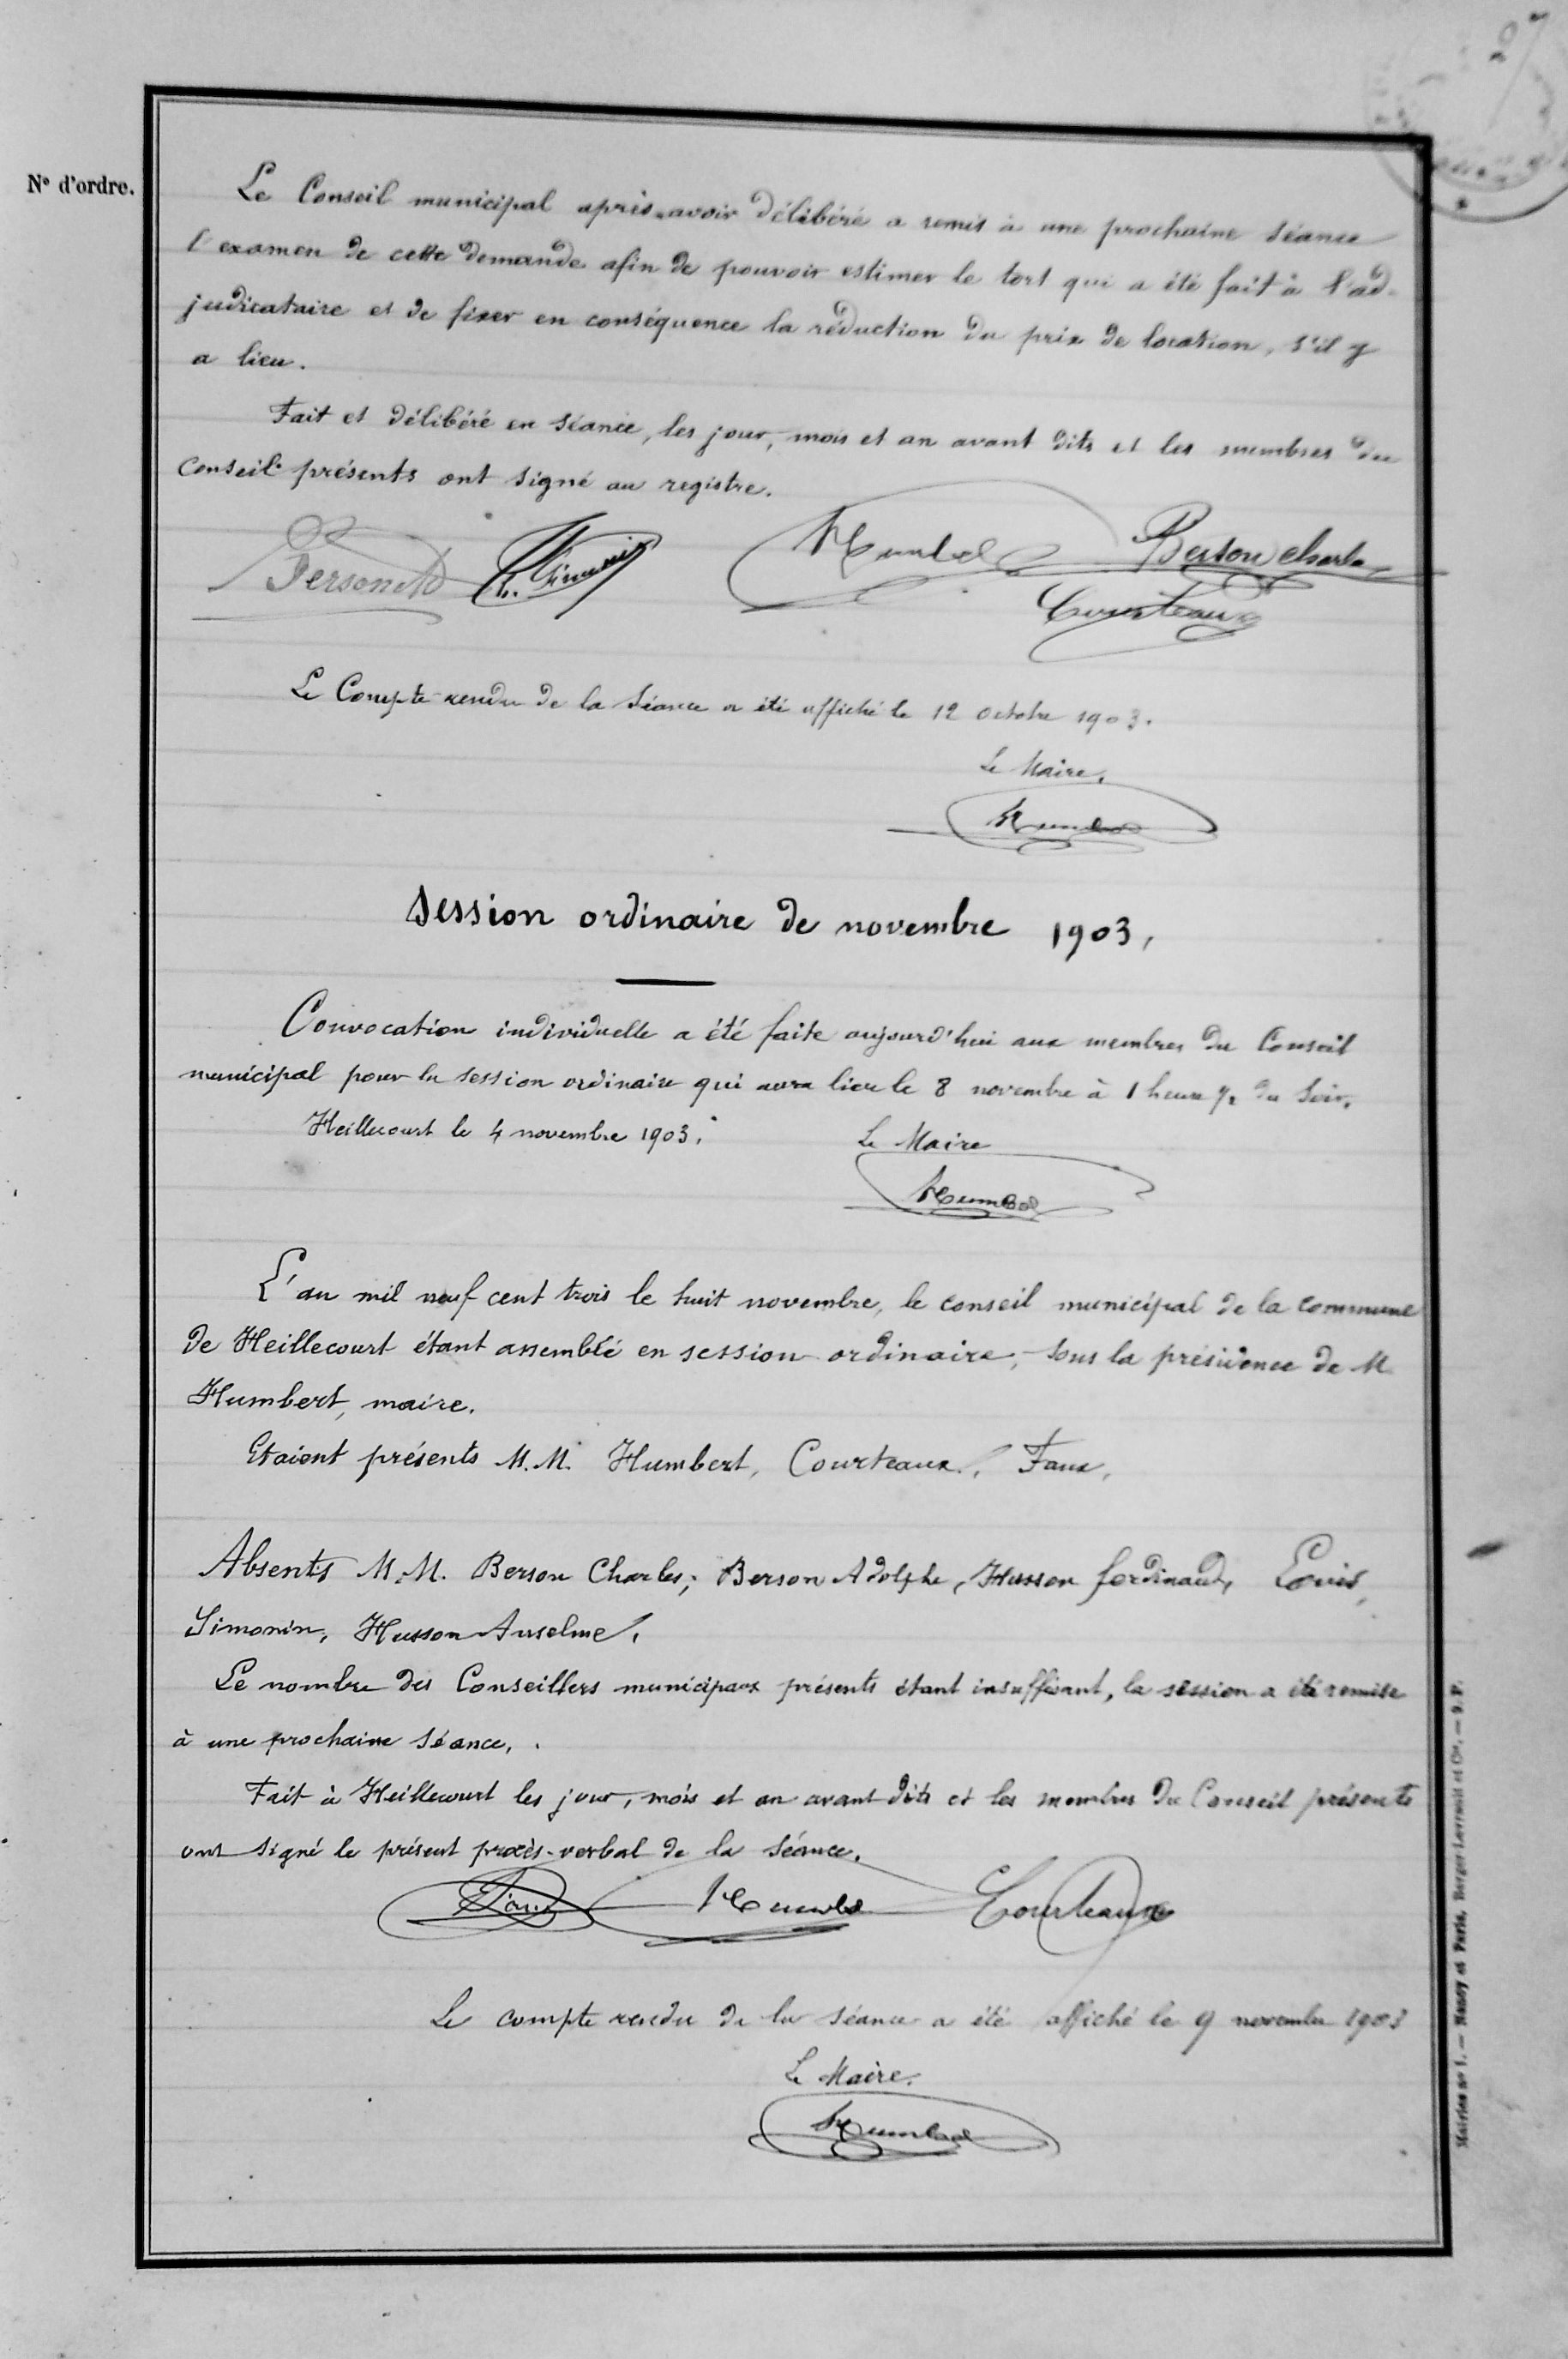 27
N° d'ordre.
Le Conseil municipal après avoir délibéré a remis à une prochaine séance
l'examen de cette demande afin de pouvoir estimer le tort qui a été fait à l'ad-
judicataire et de fixer en conséquence la réduction du prix de location, s'il y
a lieu.
Fait et délibéré en séance, les jour, mois et an avant dits et les membres du
Conseil présents ont signé au registre.
Humbert Berson Charles
Courteaux
Le Compte-rendu de la séance a été affiché le 12 octobre 1903.
Le Maire,
Humbert
Session ordinaire de novembre 1903,
Convocation individuelle a été faite aujourd'hui aux membres du Conseil
municipal pour la session ordinaire qui aura lieu le 8 novembre à 1 heure ½ du soir.
Heillecourt le 4 novembre 1903.
Le Maire
Humbert
L'an mil neuf cent trois le huit novembre, le conseil municipal de la commune
de Heillecourt étant assemblé en session ordinaire, sous la présidence de M.
Humbert, maire.
Etaient présents M.M. Humbert, Courteaux, Faux,
Absents M.M. Berson Charles, Berson Adolphe, Husson ferdinand, Louis,
Simonin, Husson Anselme.
Le nombre des Conseillers municipaux présents étant insuffisant, la session a été remise
à une prochaine séance.
Fait à Heillecourt les jour, mois et an avant dits et les membres du Conseil présents
ont signé le présent procès-verbal de la séance.
Faux Humbert Courteaux
Le compte rendu de la séance a été affiché le 9 novembre 1903
Le Maire.
Humbert
Mairies n° 1. — Nancy et Paris, Berger-Levrault et Cie. — 9.P.